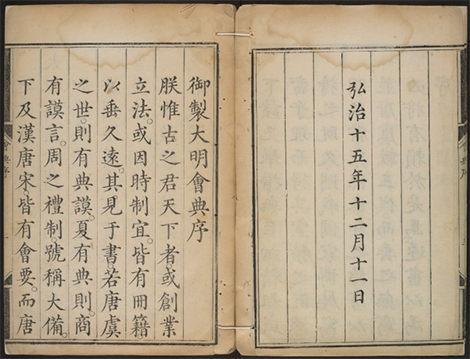 弘治十五年十二月十一日
御製大明會典序
朕惟古之君天下者或創業
立法。或因時制宜。皆有冊籍
以垂久遠。其見于書若唐虞
之世。則有典謨。夏有典則。商
有謨言。周之禮制號稱大備。
下及漢唐宋皆有會要。而唐